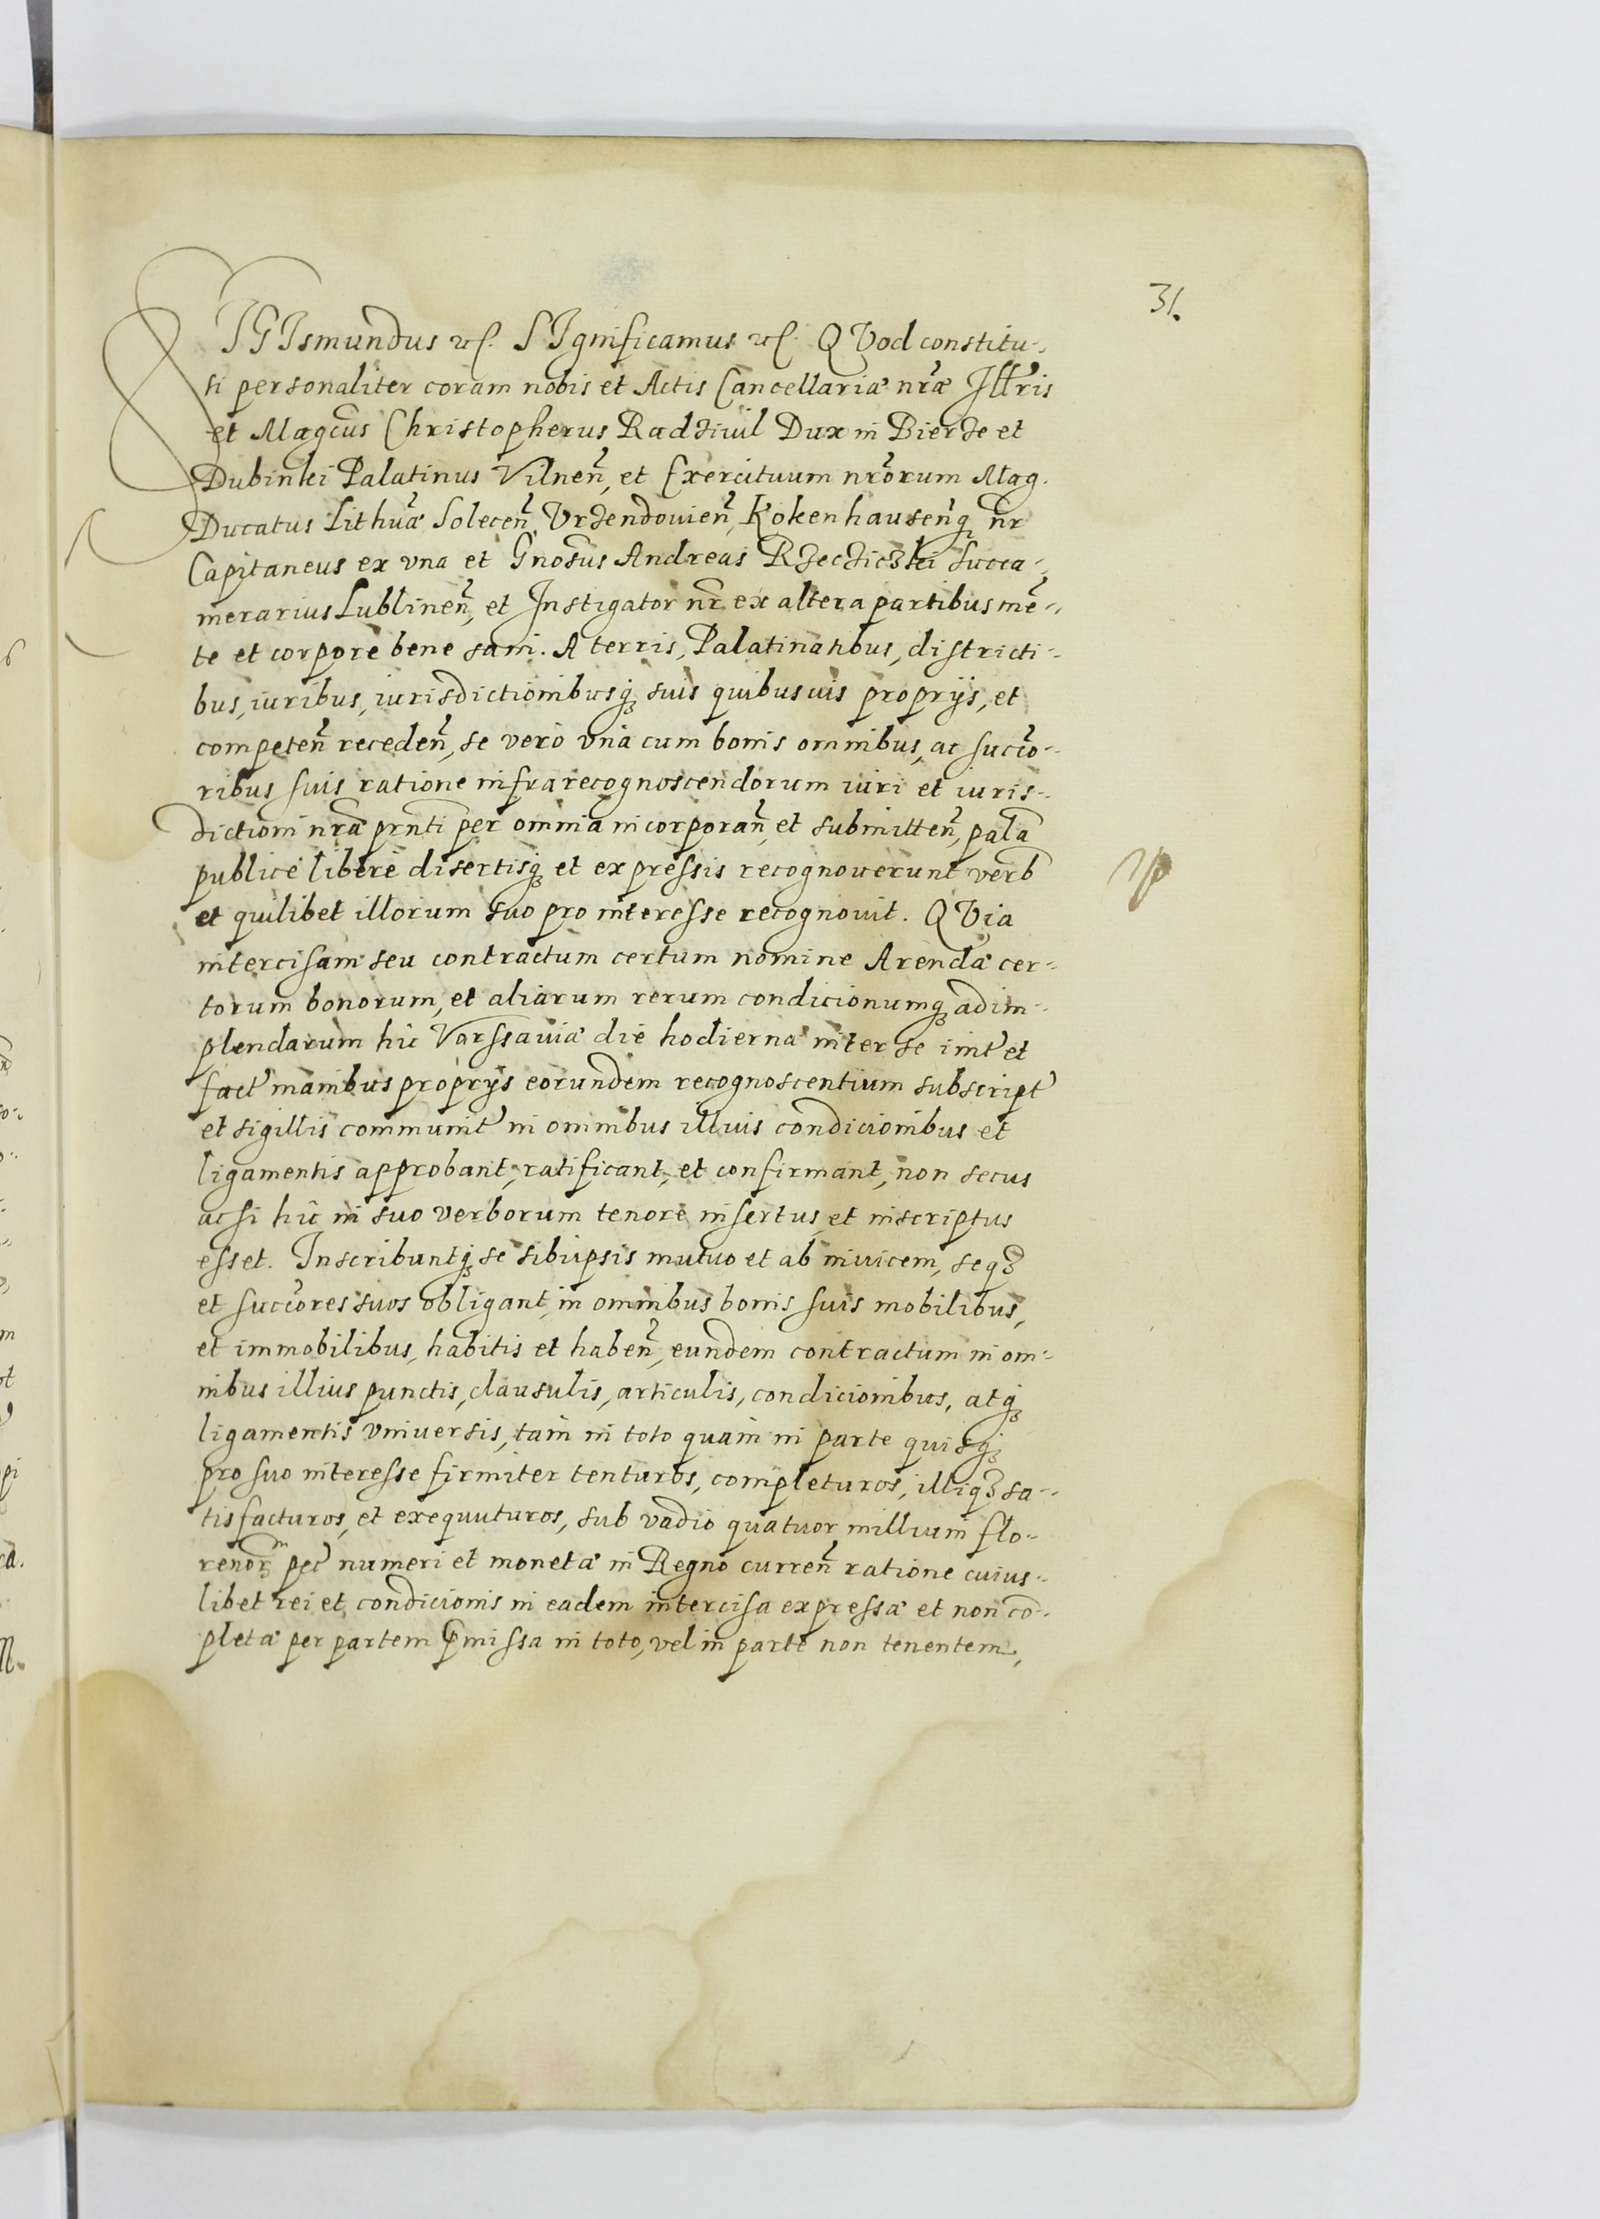 31.
SIGIsmundus etc. SIgnificamus etc. QVod constitu-
ti personaliter coram nobis et Actis Cancellariæ nr̃æ Illr̃is
et Magcus Christopherus Radziuil Dux in Bierze et
Dubinki Palatinus Vilneñ, et Exercituum nr̃orum Mag.
Ducatus Lithuæ Soleceñ, Vrzendouieñ, Kokenhauseñq nr̃
Capitaneus ex vna et Gnosus Andreas Rzecziczki Succa-
merarius Lublineñ, et Instigator nr̃ ex altera partibus mẽ-
te et corpore bene sani. A terris, Palatinatibus, districti-
bus, iuribus, iurisdictionibusq suis quibusuis proprijs, et
competeñ recedeñ, se verò vnà cum bonis omnibus, ac succo-
ribus suis ratione infrarecognoscendorum iuri et iuris-
dictioni nr̃æ pr̃nti per omnia incorporañ et submitteñ, palã
publicè liberè disertisq et expressis recognouerunt verb
et quilibet illorum suo pro interesse recognouit. QVia
intercisam seu contractum certum nomine Arendæ cer-
torum bonorum, et aliarum rerum condicionumq adim-
plendarum hic Varssauiæ die hodierna inter se init et
fact manibus proprijs eorundem recognoscentium subscript
et sigillis communit in omnibus illius condicionibus et
ligamentis approbant, ratificant, et confirmant, non secus
acsi hic in suo verborum tenore insertus et inscriptus
esset. Inscribuntq se sibiipsis mutuo et ab inuicem, seq
et succores suos obligant, in omnibus bonis suis mobilibus,
et immobilibus, habitis et habeñ, eundem contractum in om-
nibus illius punctis, clausulis, articulis, condicionibus, atq
ligamentis vniuersis, tam in toto quam in parte quisq
pro suo interesse firmiter tenturos, completuros, illiq sa-
tisfacturos, et exequuturos, sub vadio quatuor millium flo-
renor pec numeri et monetæ in Regno curreñ ratione cuius-
libet rei et condicionis in eadem intercisa expressæ et non cõ-
pletæ per partem pmissa in toto, vel in parte non tenentem,